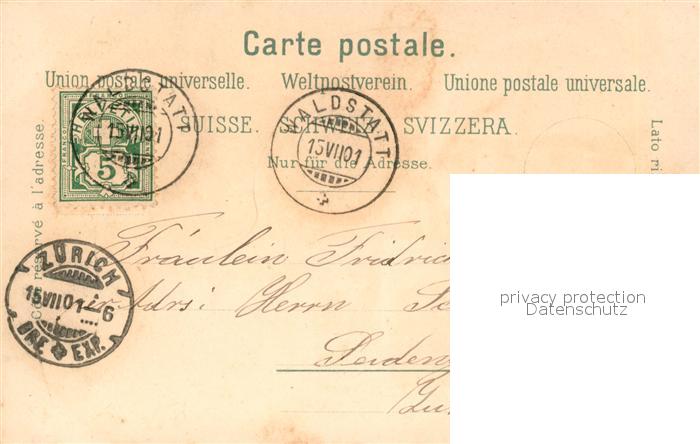 Carte postale.
Union postale universelle. Weltpostverein. Unione postale universale.
SUISSE. SCHWEIZ. SVIZZERA.
Nur für die Adresse.
WALDSTATT
15 VII 01
WALDSTATT
15 VII 01
FRANCO
HELVETIA
5
Côté réservé à l'adresse.
Lato ri
ZÜRICH
15 VII 01 - 6
BRF EXP.
Fräulein Fridric
Adrs: Herrn
privacy protection
Datenschutz